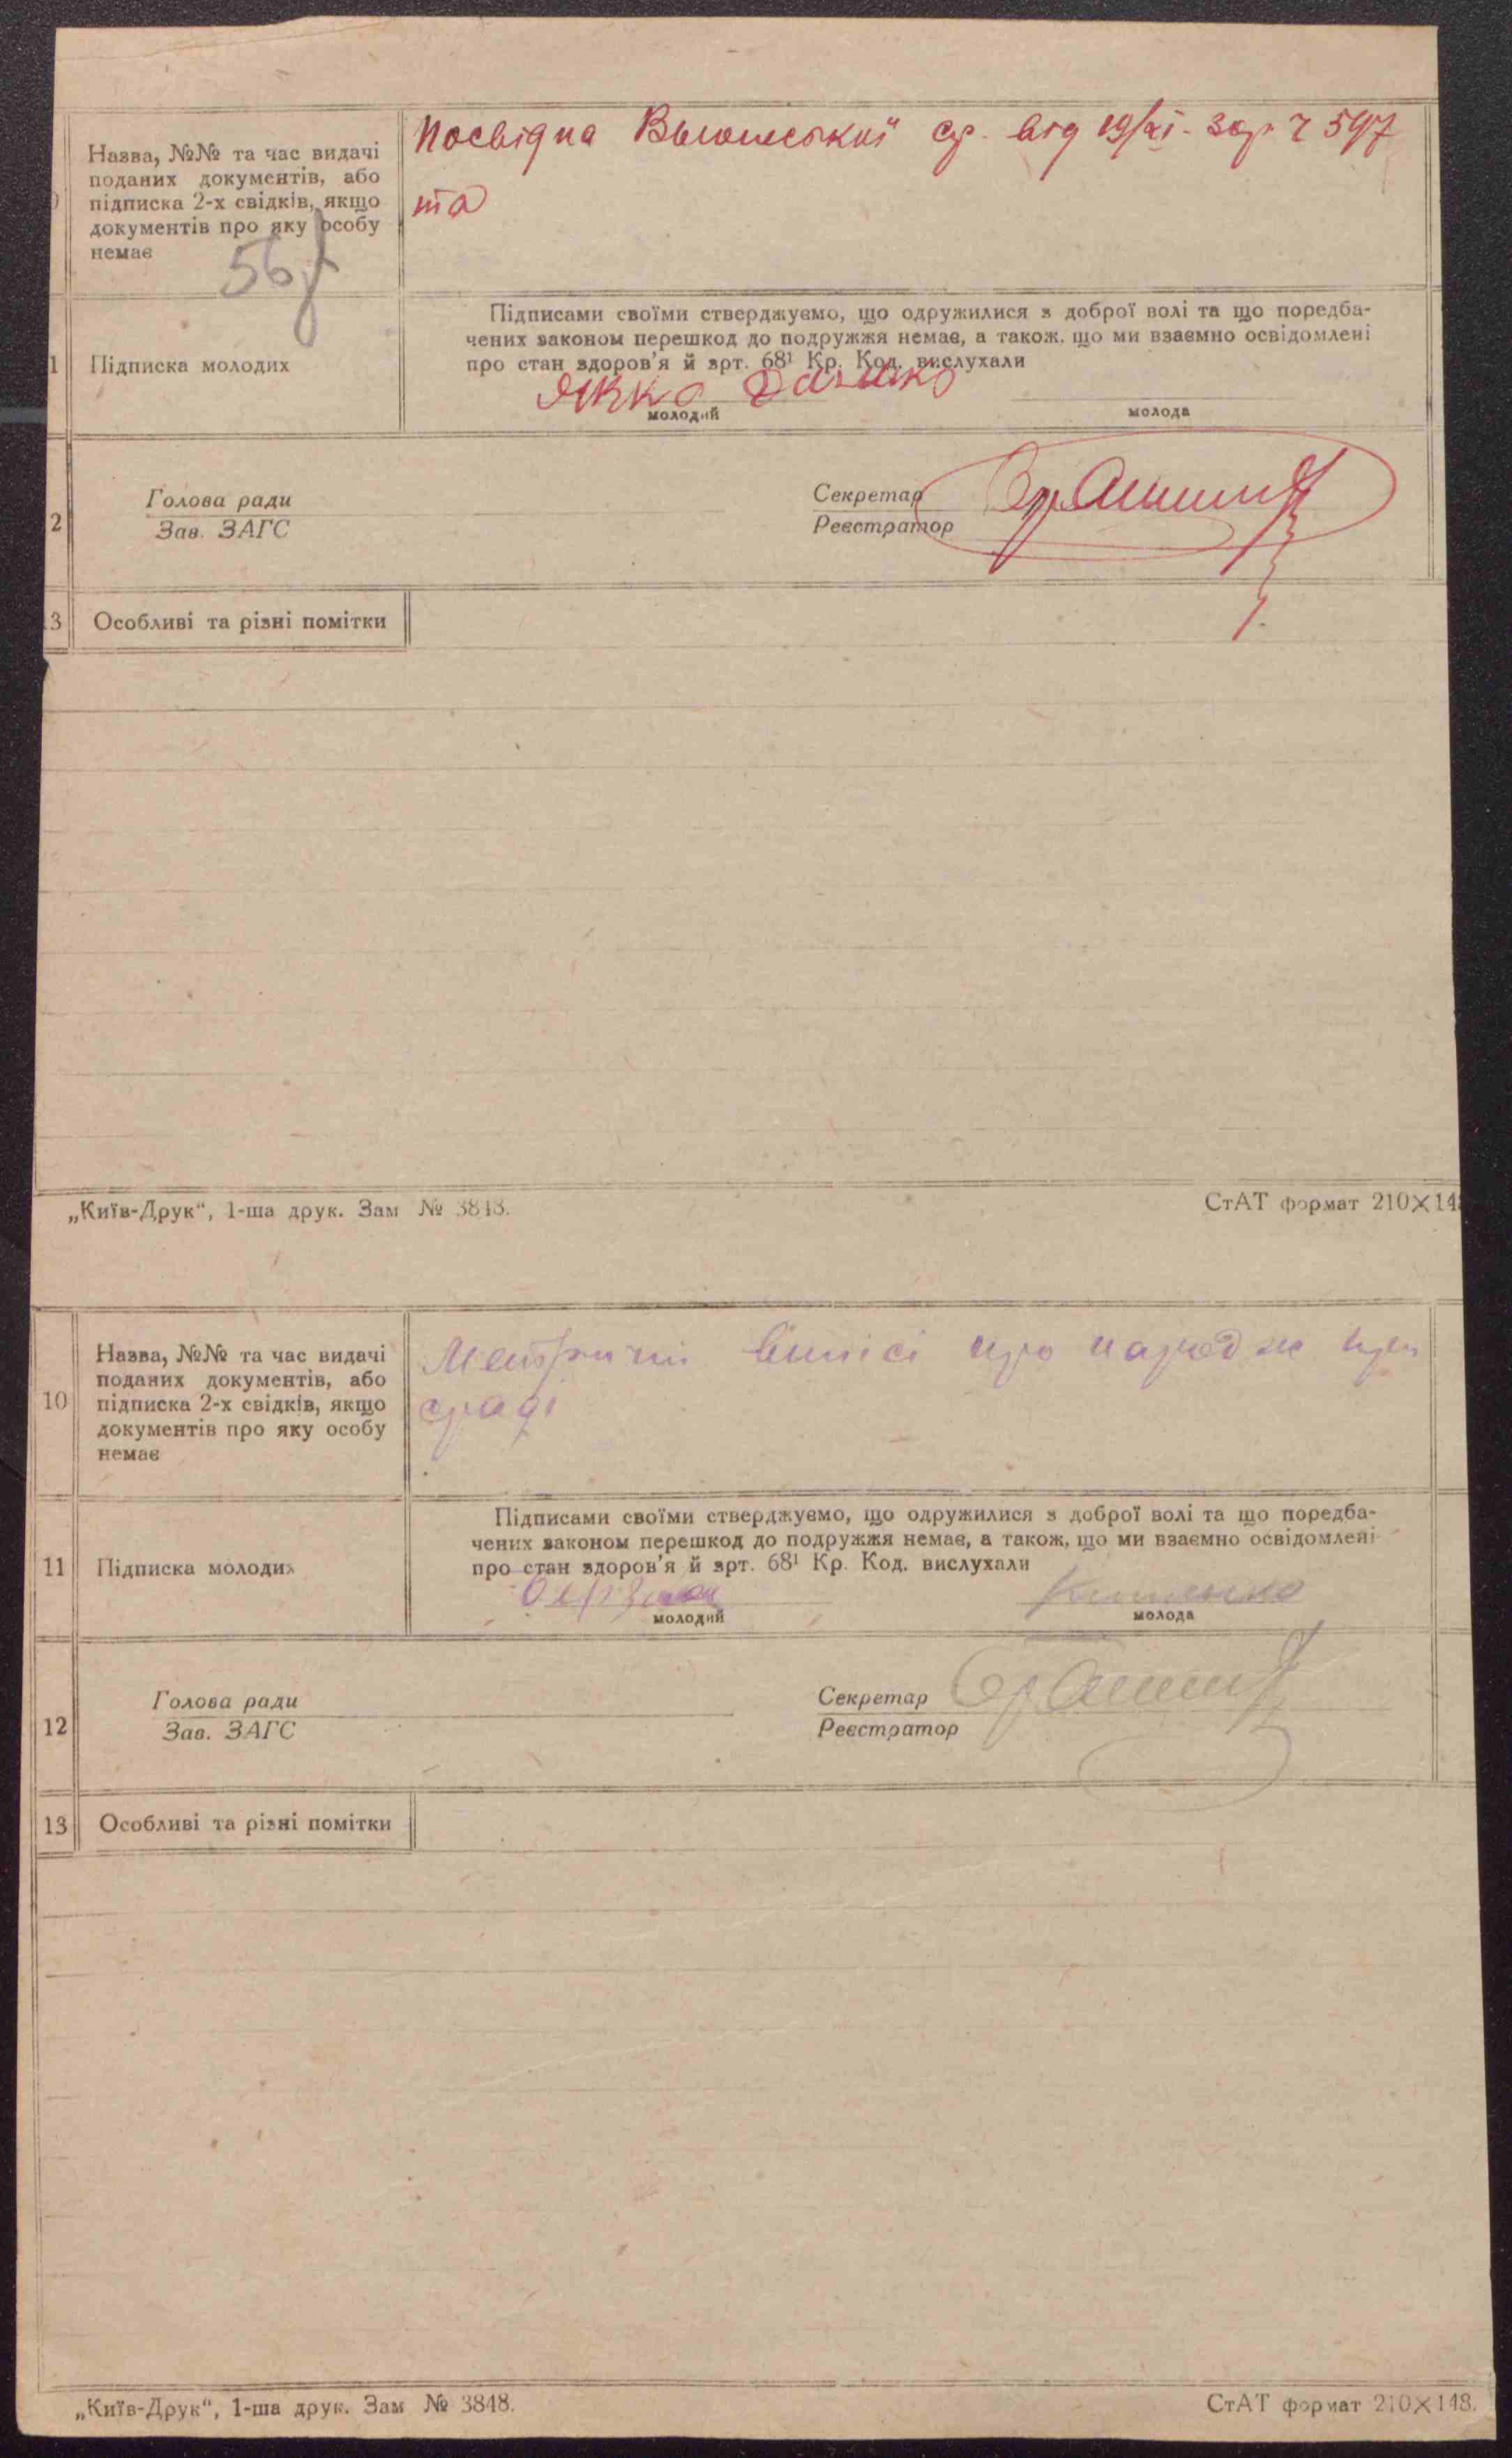 Назва, №№ та час видачі
поданих документів, або
підписка 2-х свідків, якщо
документів про яку особу
немає
Посвідка ср. від 19/XI - Зар ч 597
та
56
Підписами своїми стверджуємо, що одружилися з доброї волі та що поредба-
чених законом перешкод до подружжя немає, а також, що ми взаємно освідомлені
про стан здоров'я й зрт. 68¹ Кр. Код. вислухали
1 Підписка молодих
молодий молода
2
Голова ради
Зав. ЗАГС
Секретар
Реєстратор
3 Особливі та різні помітки
„Київ-Друк“, 1-ша друк. Зам № 3848.
СтАТ формат 210×14
10
Назва, №№ та час видачі
поданих документів, або
підписка 2-х свідків, якщо
документів про яку особу
немає
Метричні виписі про народж при
сраді
Підписами своїми стверджуємо, що одружилися з доброї волі та що поредба-
чених законом перешкод до подружжя немає, а також, що ми взаємно освідомлені
про стан здоров'я й зрт. 68¹ Кр. Код. вислухали
11 Підписка молодих
молодий молода
12
Голова ради
Зав. ЗАГС
Секретар
Реєстратор
13 Особливі та різні помітки
„Київ-Друк“, 1-ша друк. Зам № 3848.
СтАТ формат 210×148.